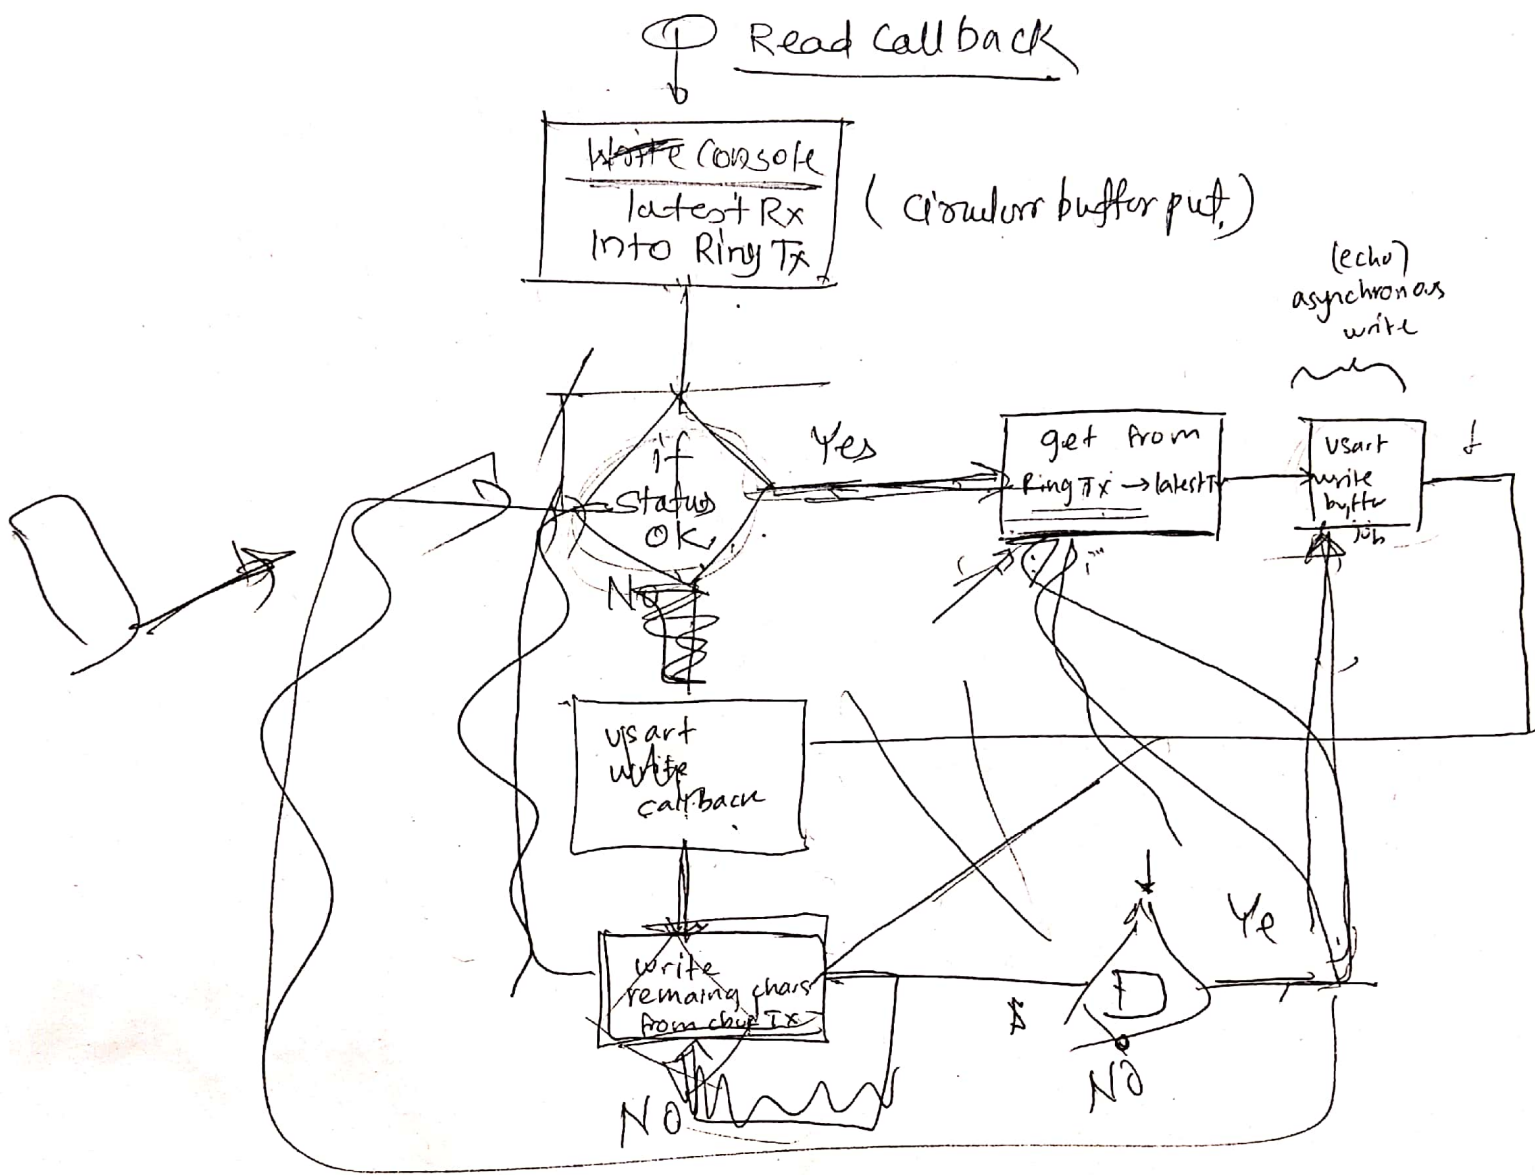 Read Callback
Write Console
latest Rx
Into Ring Tx
(Circular buffer put)
(echo)
asynchronous
write
if
Status
OK
Yes
get from
Ring Tx → latest T
Usart
write
buffer
job
No
usart
write
callback
write
remaing chars
from cbuf Tx
Ye
D
NO
NO